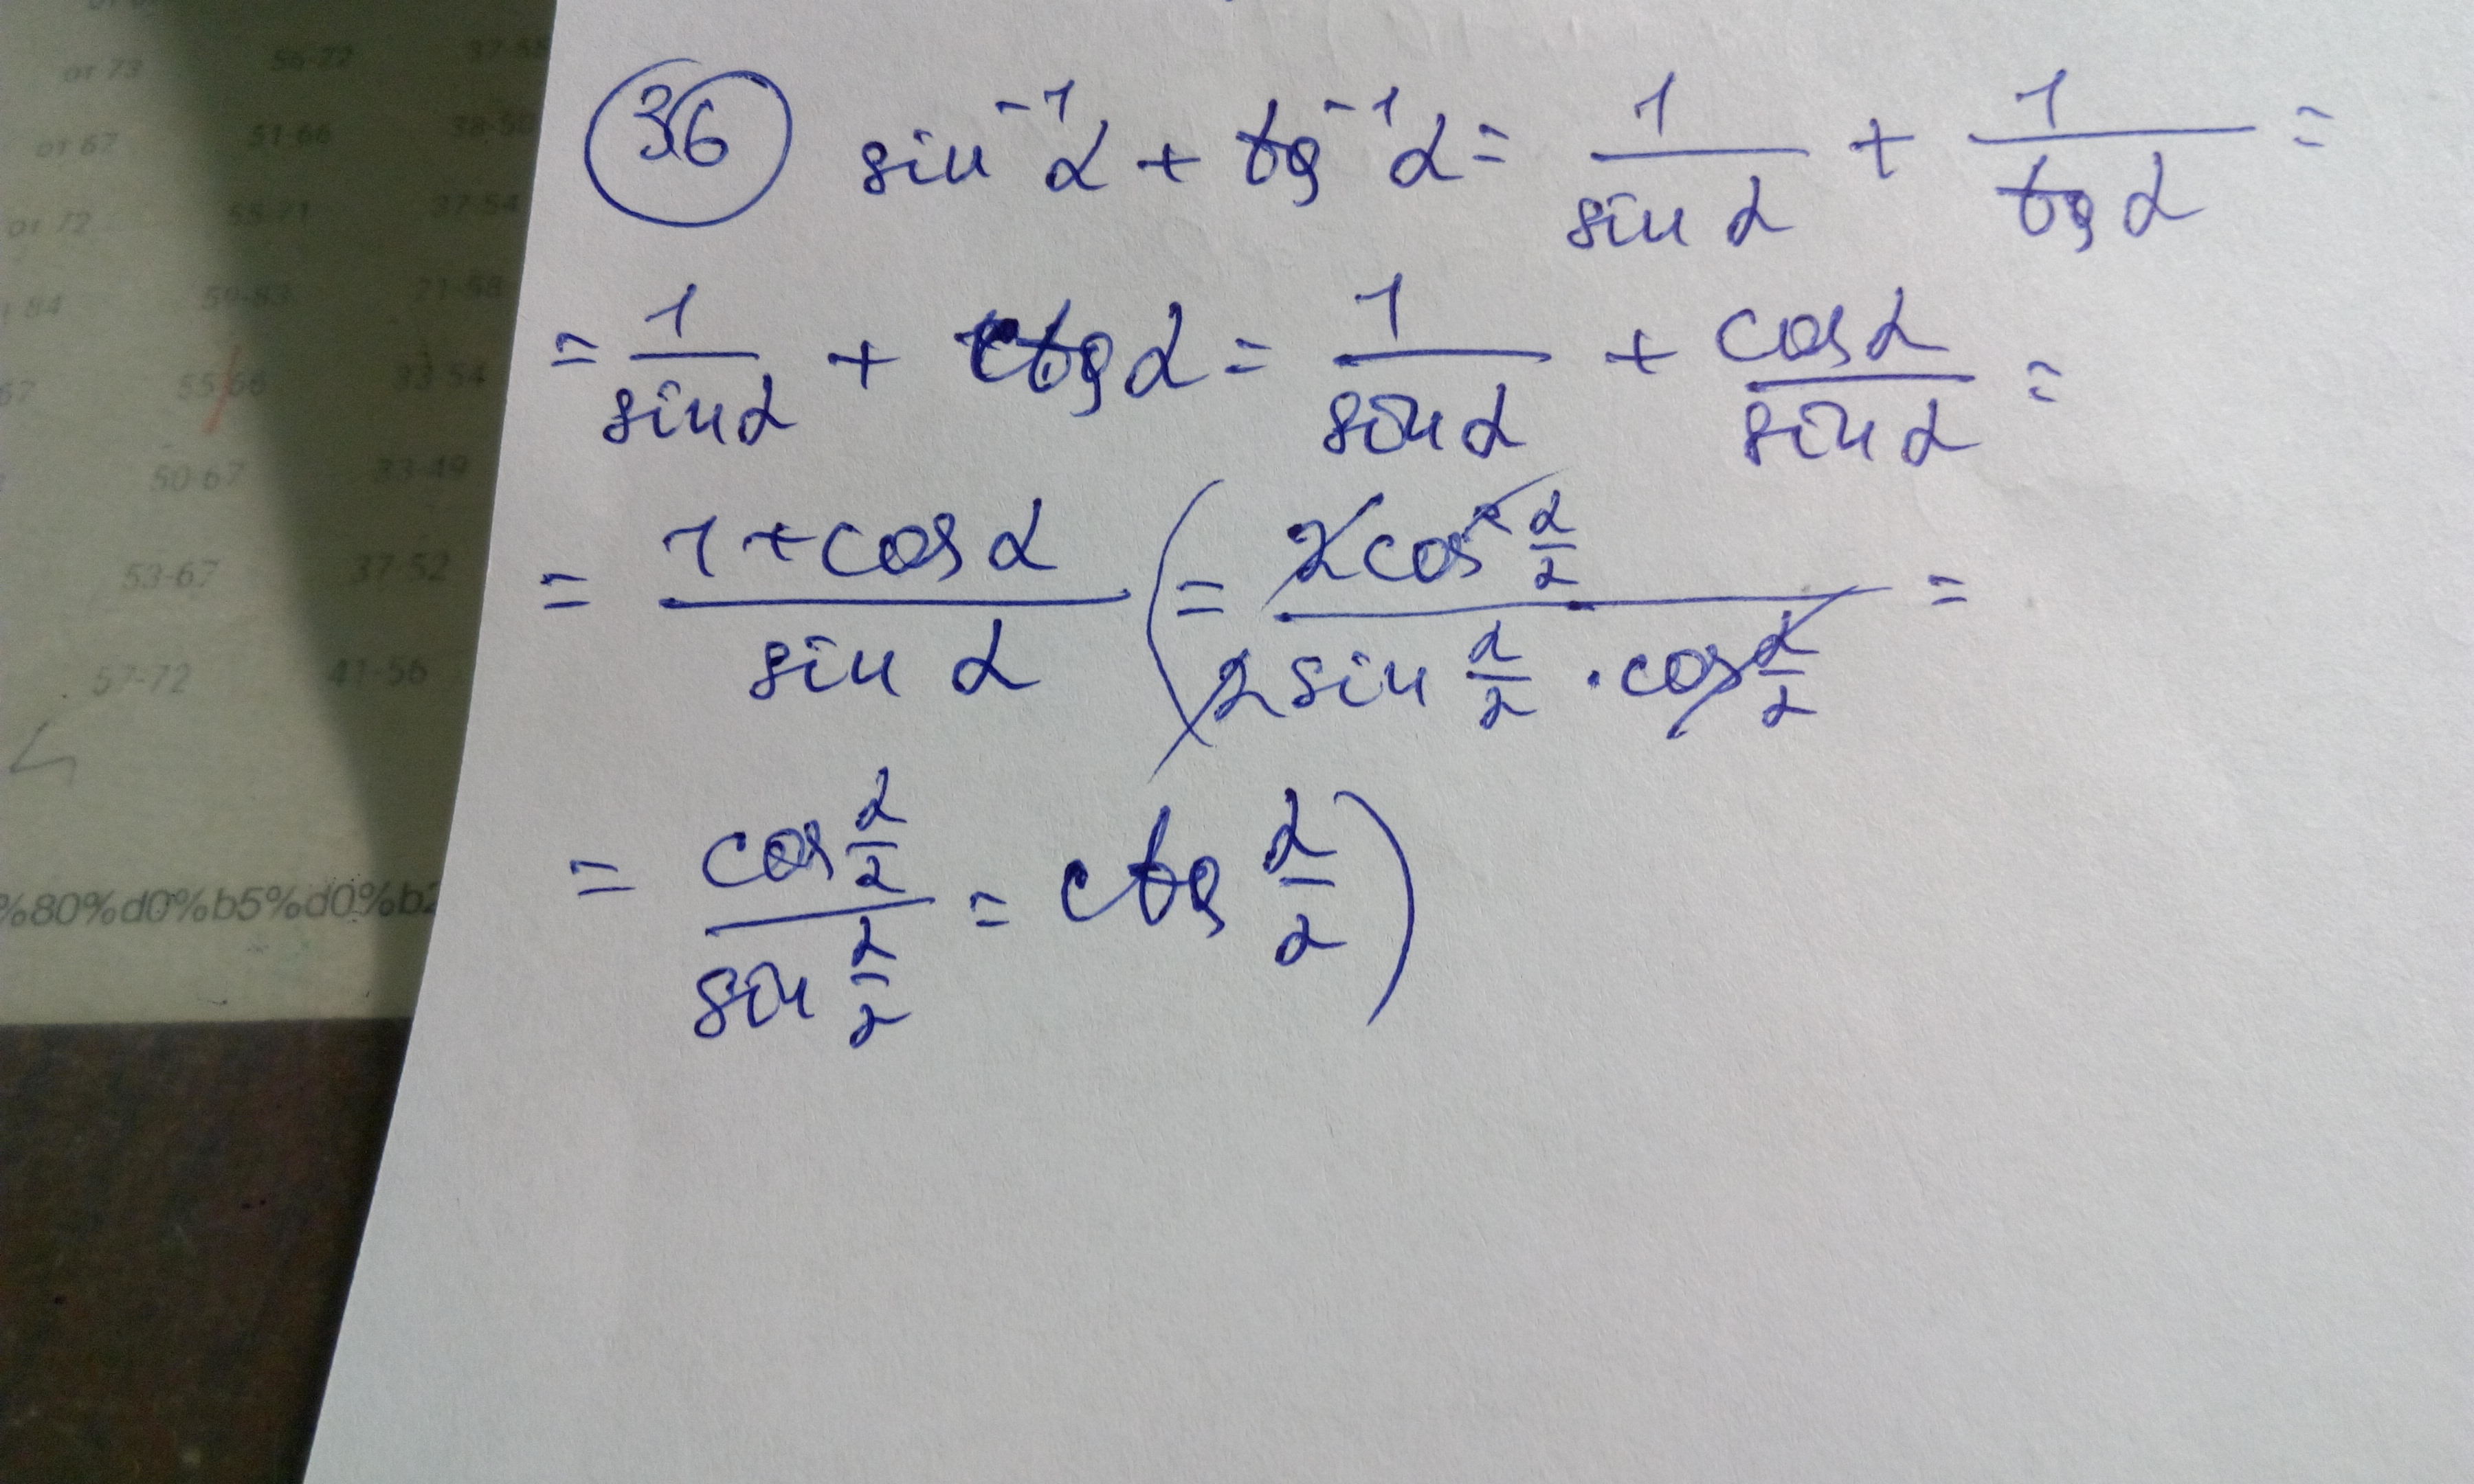 от 73 56-72 37-55
от 67 51-66 38-50
от 72 55-71 37-54
84 59-83 21-58
67 55-66 33-54
50-67 33-49
53-67 37-52
57-72 41-56
%80%d0%b5%d0%b2
36 sin⁻¹α + tg⁻¹α = 1/sin α + 1/tg α =
= 1/sin α + ctg α = 1/sin α + cos α/sin α =
= (1+cos α)/sin α ( = 2cos² α/2 / 2sin α/2 · cos α/2 =
= cos α/2 / sin α/2 = ctg α/2 )